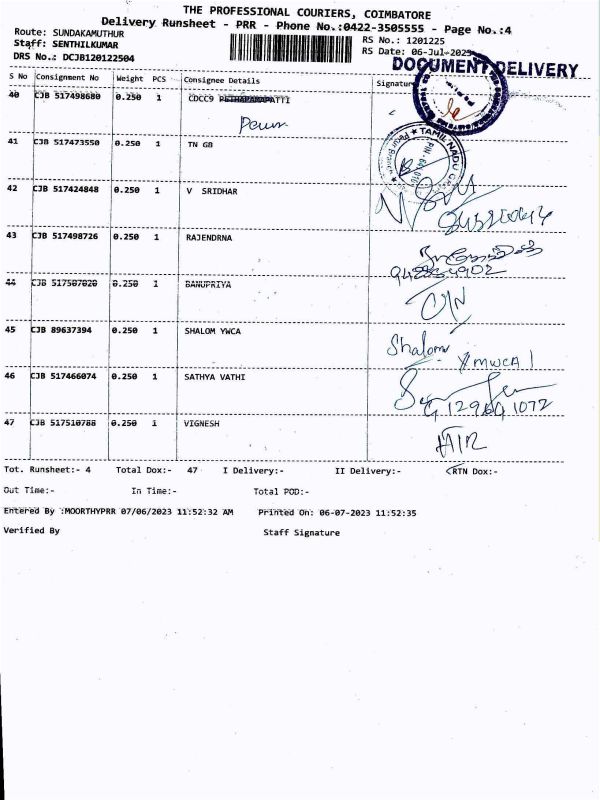 THE PROFESSIONAL COURIERS, COIMBATORE
Delivery Runsheet - PRR - Phone No.:0422-3505555 - Page No.:4
Route: SUNDAKAMUTHUR
RS No.: 1201225
Staff: SENTHILKUMAR
RS Date: 06-Jul-2023
DRS No.: DCJB120122504
DOCUMENT DELIVERY
S No Consignment No Weight PCS Consignee Details Signature
40 CJB 517498680 0.250 1 CDCC9
41 CJB 517473550 0.250 1 TN GB
TAMIL NADU
42 CJB 517424848 0.250 1 V SRIDHAR
43 CJB 517498726 0.250 1 RAJENDRNA
44 CJB 517507020 0.250 1 BANUPRIYA
45 CJB 89637394 0.250 1 SHALOM YWCA
Shalom
46 CJB 517466074 0.250 1 SATHYA VATHI
47 CJB 517510788 0.250 1 VIGNESH
Tot. Runsheet:- 4 Total Dox:- 47 I Delivery:- II Delivery:- RTN Dox:-
Out Time:- In Time:- Total POD:-
Entered By :MOORTHYPRR 07/06/2023 11:52:32 AM Printed On: 06-07-2023 11:52:35
Verified By Staff Signature